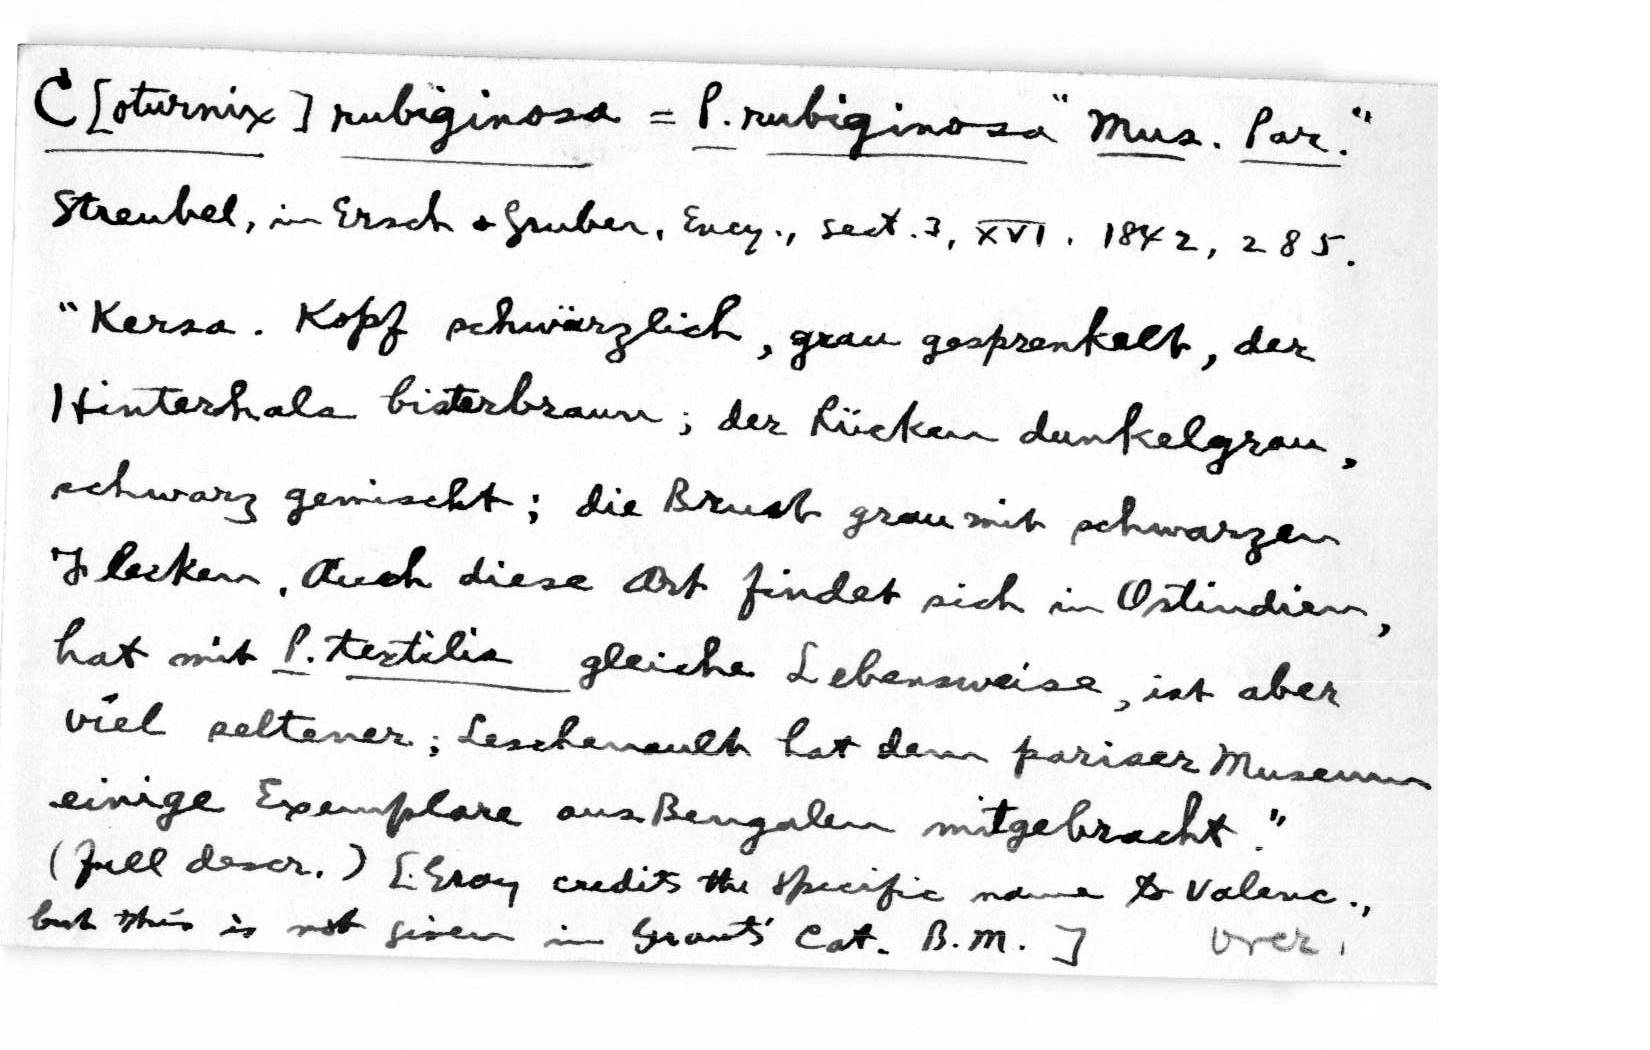 C[oturnix] rubiginosa = P. rubiginosa "Mus. Par."
Streubel, in Ersch & Gruber, Ency., sect. 3, XVI. 1842, 285.
"Kersa. Kopf schwärzlich, grau gesprenkelt, der
Hinterhals bisterbraun; der Rücken dunkelgrau,
schwarz gemischt; die Brust grau mit schwarzen
Flecken. Auch diese Art findet sich in Ostindien,
hat mit P. textilis gleiche Lebensweise, ist aber
viel seltener; Leschenault hat dem pariser Museum
einige Exemplare aus Bengalen mitgebracht."
(full descr.) [Gray credits the specific name to Valenc.,
but this is not given in Grants' Cat. B.M.] over.